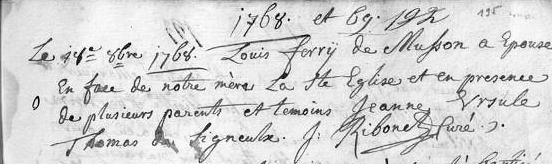 1768. et 69. 192 195
Le 18e 8bre 1768. Louis ferrÿ de Musson a Epousé
En face de notre mère La Ste Eglise et en presence
de plusieurs parents et temoins Jeanne Ursule
Thomas de Signeulx. J: Ribonet Curé